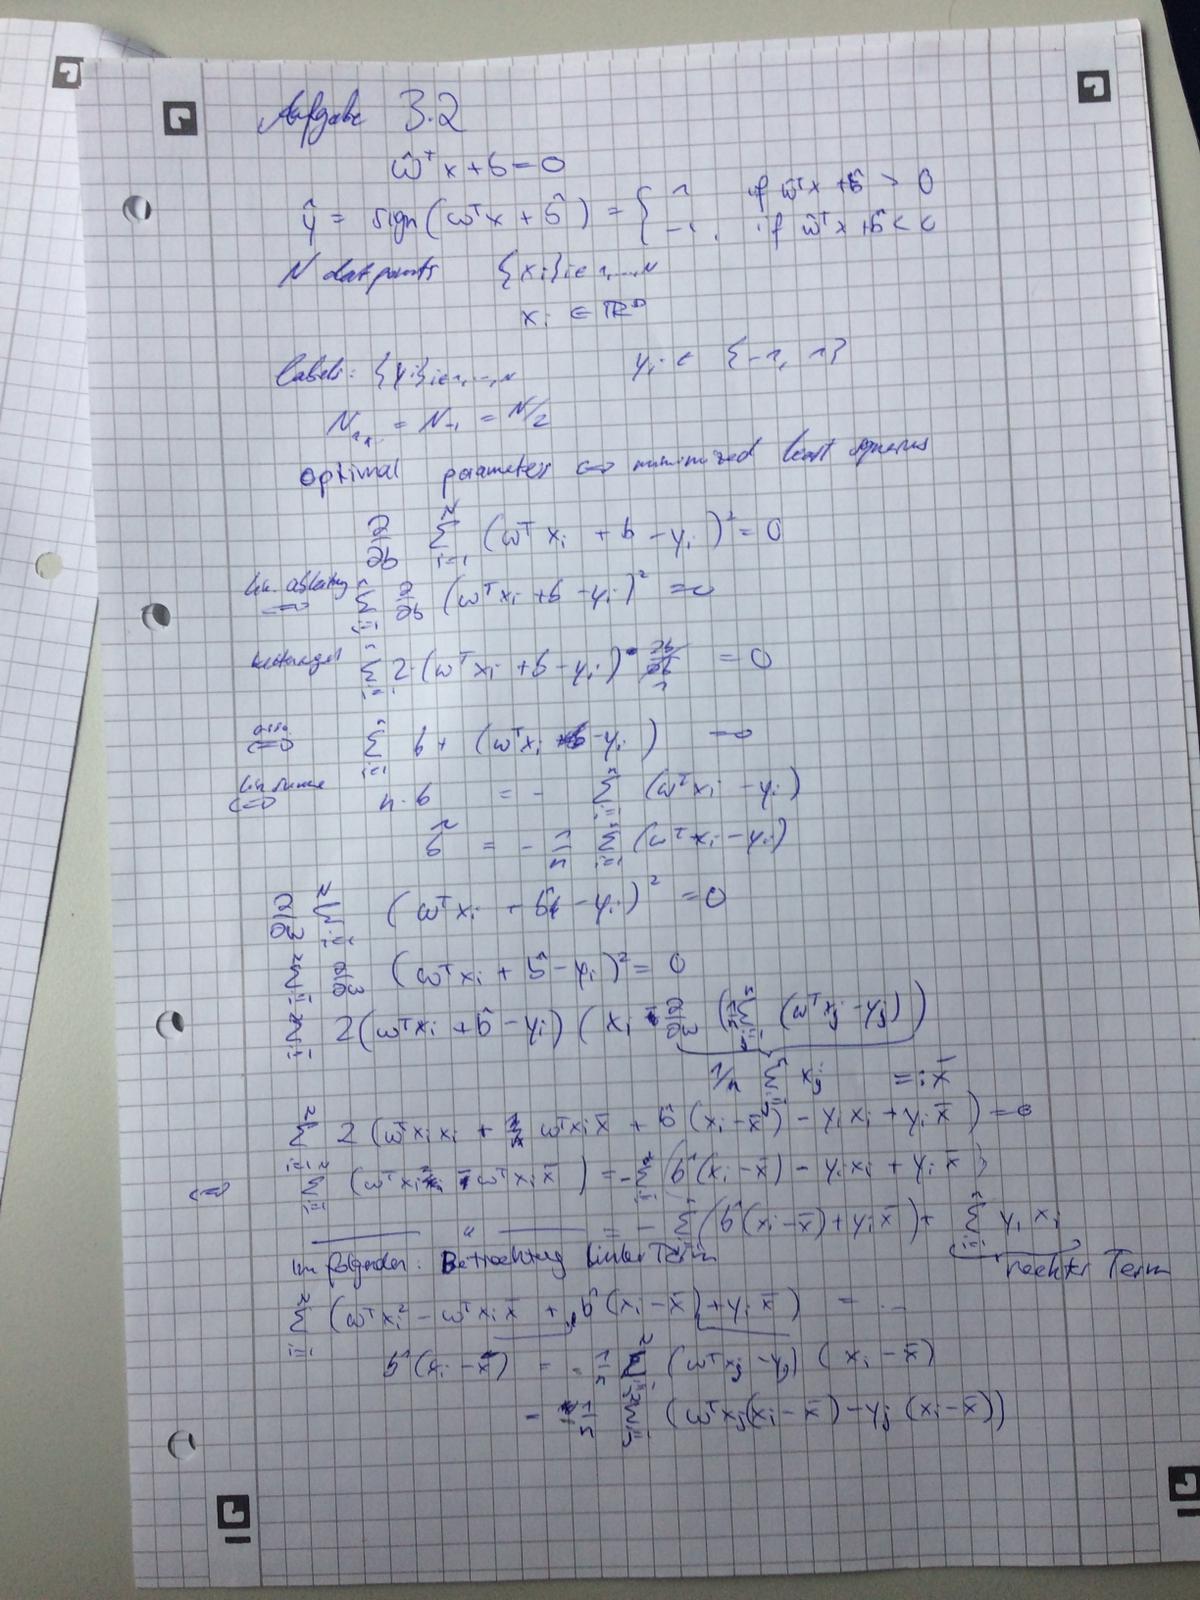 Aufgabe 3.2
ŵᵀx + b = 0
ŷ = sign(ŵᵀx + b̂) = { 1 if ŵᵀx + b̂ > 0
-1, if ŵᵀx + b̂ < 0
N datpoints {xᵢ}i∈1,...,N
xᵢ ∈ ℝᴰ
labels: {yᵢ}i∈1,...,N yᵢ ∈ {-1, 1}
N₁ = N₋₁ = N/2
optimal parameters ⇔ minimized least squares
∂/∂b Σᵢ₌₁ᴺ (wᵀxᵢ + b - yᵢ)² = 0
lin. ableitung ⇔ Σᵢ₌₁ⁿ ∂/∂b (wᵀxᵢ + b - yᵢ)² = 0
Σᵢ₌₁ⁿ 2·(wᵀxᵢ + b - yᵢ) · ∂b/∂b = 0
1
asso. ⇔ Σᵢ₌₁ⁿ b + (wᵀxᵢ - yᵢ) = 0
lin. Summe ⇔ n·b = - Σᵢ₌₁ⁿ (wᵀxᵢ - yᵢ)
b̂ = - 1/n Σᵢ₌₁ⁿ (wᵀxᵢ - yᵢ)
∂/∂w Σᵢ₌₁ᴺ (wᵀxᵢ + b̂ - yᵢ)² = 0
Σᵢ₌₁ⁿ ∂/∂w (wᵀxᵢ + b̂ - yᵢ)² = 0
Σᵢ₌₁ⁿ 2(wᵀxᵢ + b̂ - yᵢ) (xᵢ - ∂/∂w (1/n Σⱼ₌₁ⁿ (wᵀxⱼ - yⱼ)))
1/n Σⱼ₌₁ⁿ xⱼ =: x̄
Σᵢ₌₁ⁿ 2 (wᵀxᵢxᵢ + wᵀxᵢx̄ + b̂(xᵢ - x̄) - yᵢxᵢ + yᵢx̄) = 0
⇔ Σᵢ₌₁ᴺ (wᵀxᵢ² - wᵀxᵢx̄) = -Σᵢ₌₁ⁿ (b̂(xᵢ - x̄) - yᵢxᵢ + yᵢx̄)
—— " —— = - Σᵢ₌₁ⁿ (b̂(xᵢ - x̄) + yᵢx̄) + Σᵢ₌₁ⁿ yᵢxᵢ
Im folgenden: Betrachtung linker Term rechter Term
Σᵢ₌₁ⁿ (wᵀxᵢ² - wᵀxᵢx̄ + b̂(xᵢ - x̄) + yᵢx̄) = ...
b̂(xᵢ - x̄) = - 1/n Σⱼ₌₁ⁿ (wᵀxⱼ - yⱼ) (xᵢ - x̄)
= - 1/n Σⱼ₌₁ⁿ (wᵀxⱼ(xᵢ - x̄) - yⱼ(xᵢ - x̄))